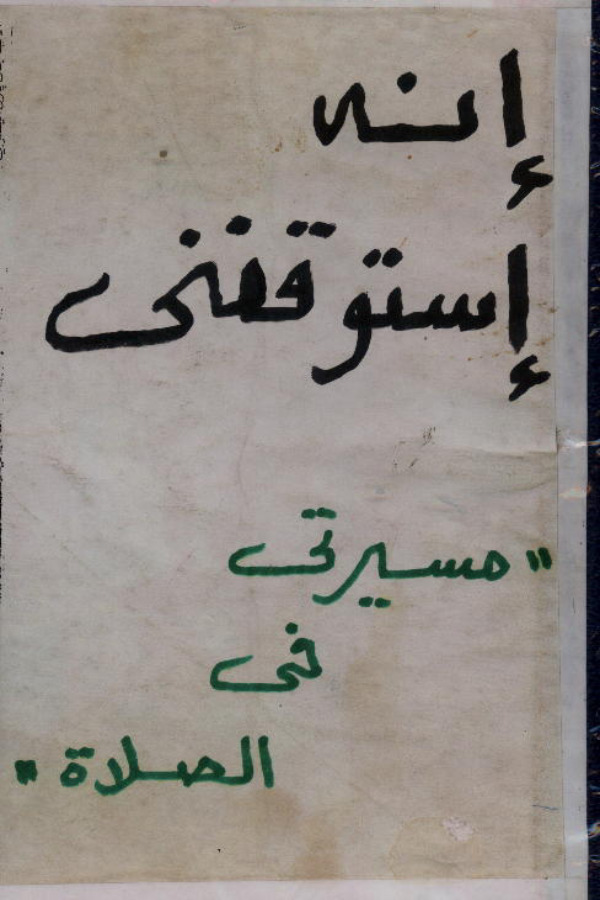 إنه
إستوقفنى
"مسيرتى
فى
الصلاة"